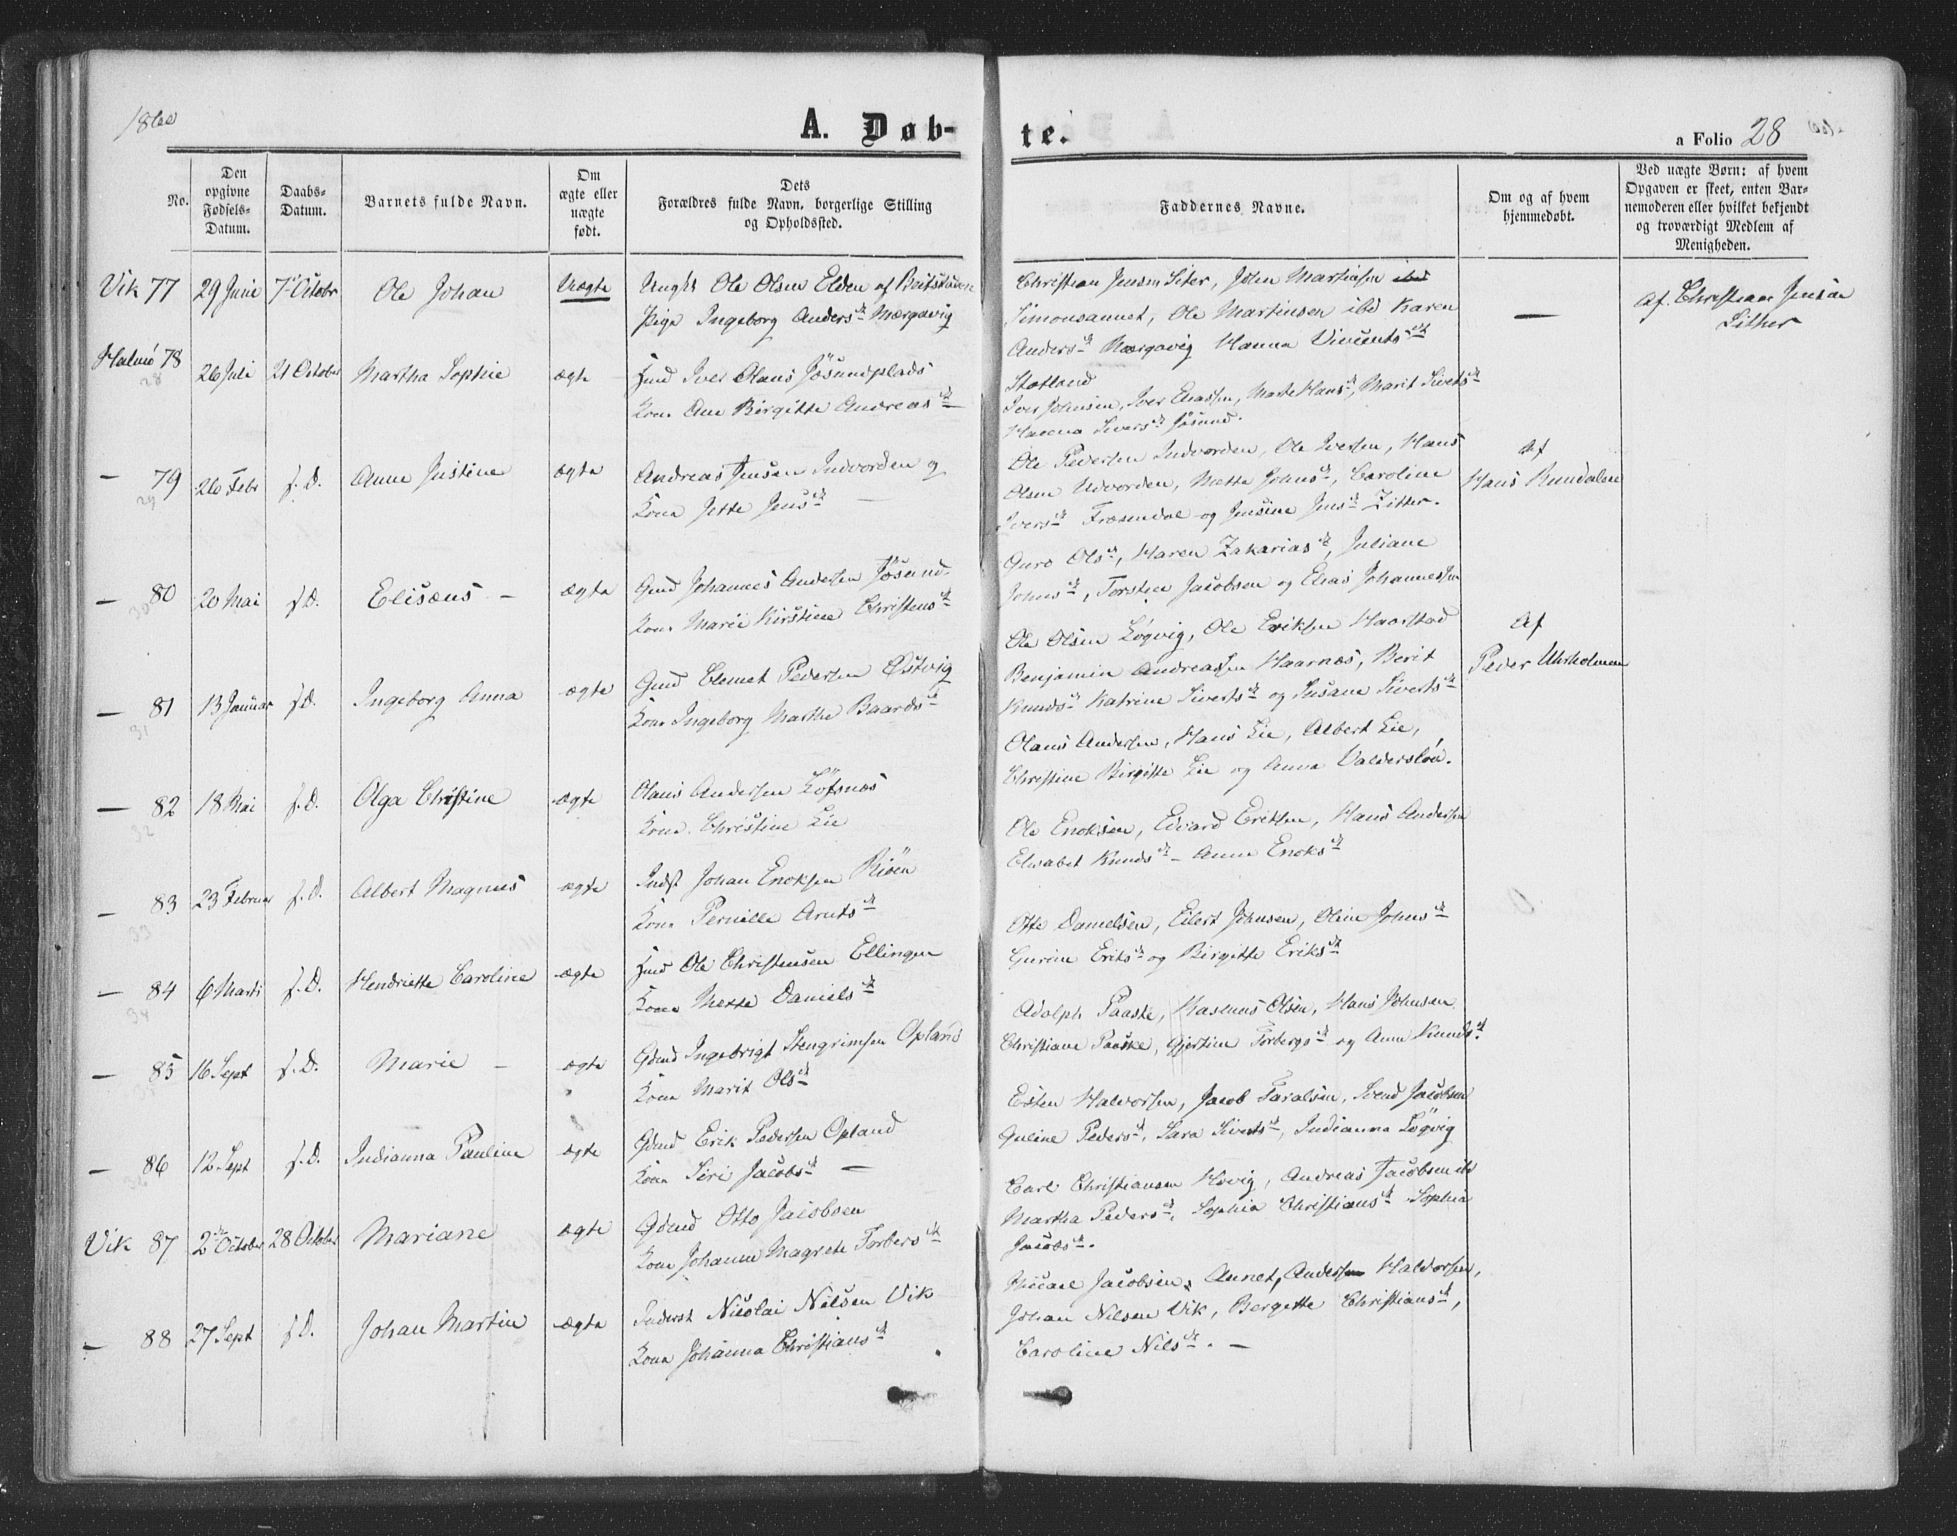 1860
A. Døb-
te.
a Folio 28
No.
Den
opgivne
Fødsels-
Datum.
Daabs-
Datum.
Barnets fulde Navn.
Om
ægte eller
uægte
født.
Dets
Forældres fulde Navn, borgerlige Stilling
og Opholdssted.
Faddernes Navne.
Om og af hvem
hjemmedøbt.
Ved uægte Børn: af hvem
Opgaven er skeet, enten Bar-
nemoderen eller hvilket bekjendt
og troværdigt Medlem af
Menigheden.
Vik 77 29 Juni 7de Octobr Ole Johan Uægte
Ungk Ole Olsen Elden af Beitstaden
Pige Ingeborg Andersdt Mærgavig
Christian Jensen Siter, John Martinsen
Simonsannet, Ole Martinsen ibd Karen
Andersdt Mærgavig Hanna Vincentsdt
Stotland
—
Af. Christian Jensen
Sither
78 28 26 Juli 21 October Martha Sophie ægte
Hmd Iver Olaus Jøsundplads
Kone Ane Birgitte Andreasdt
Iver Johnsen, Iver Eliassen, Marte Hansdt, Marit Sivertsdt
Hanna Siversdt Jøsund.
— 79 29 26 Febr s. D. Anne Justine ægte
Andreas Jensen Indvorden og
Kone Jette Jensdt —
Ole Pedersen Indvorden, Ole Iversen, Hans
Olsen Udvorden, Mette Johnsdt, Caroline
Iversdt Fræsendal og Jensine Jensdt Zitter.
Af
Hans Rundalen
— 80 30 20 Mai s. D. Elisæus — ægte
Gmd Johannes Andersen Jøsund
Kone Marie Kirstine Christensdt
Guro Olsdt, Maren Zakariasdt, Juliane
Johnsdt, Torsten Jacobsen og Elias Johannessen
— 81 31 13 Januar s. D. Ingeborg Anna ægte
Gmd Clemet Pedersen Østvig
Kone Ingeborg Marthe Baardsdt
Ole Olsen Løqvig, Ole Eriksen Haarstad
Benjamin Andreassen Haarnæs, Berit
Knudsdt Katrine Sivertsdt og Susane Sivertsdt
Af
Peder Uhrholmen
— 82 32 18 Mai s. D. Olga Christine ægte
Olaus Andersen Løfsnæs
Kone Christine Lie
Olaus Andersen, Hans Lie, Albert Lie,
Christine Birgitte Lie og Anna Valdersløn.
— 83 33 23 Februar s. D. Albert Magnus ægte
Indst Johan Enoksen Riøen
Kone Pernille Arntsdt
Ole Enoksen, Edvard Eriksen, Hans Andersen
Elisabet Knudsdt — Anne Enoksdt
— 84 34 6 Marts s. D. Hendriette Caroline ægte
Hmd Ole Christensen Ellingen
Kone Mette Danielsdt
Otte Danielsen, Eilert Johnsen, Oline Johnsdt
Gurine Eriksdt og Birgitte Eriksdt
— 85 35 16 Sept s. D. Marie — ægte
Gdmd Ingebrigt Stengrimsen Opland
Kone Marit Olsdt
Adolph Paaske, Rasmus Olsen, Hans Johnsen
Christiane Paaske, Gjertine Torbergsdt og Anne Knudsdt.
— 86 36 12 Sept s. D. Indianna Pauline ægte
Gdmd Erik Pedersen Opland
Kone Siri Jacobsdt —
Esten Halvorsen, Jacob Taralsen, Svend Jacobsen
Guline Pedersdt, Sara Sivertsdt, Indianna Løqvig
Vik 87 2de October 28 October Mariane ægte
Gdmd Otto Jacobsen
Kone Johanna Magrete Torbersdt
Carl Christiansen Hovig, Andreas Jacobsen ibd
Martha Pedersdt, Sophia Christiansdt Sophia
Jacobsdt.
— 88 27 Sept s. D. Johan Martin ægte
Inderst Nicolai Nilsen Vik
Kone Johanna Christiansdt
Jacobsen, Annet, Andersen Halvorsen,
Johan Nilsen Vik, Bergette Christiansdt,
Caroline Nilsdt. —